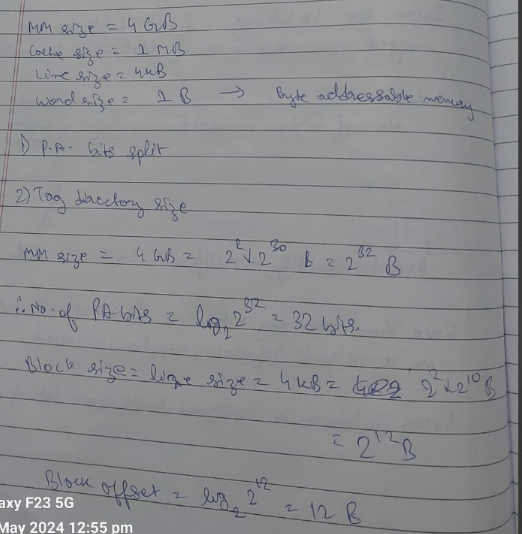 MM size = 4 GB
Cache size = 1 MB
Line size = 4kB
Word size = 1 B → Byte addressable memory
1) P.A. bits split
2) Tag directory size
MM size = 4 GB = 2² × 2³⁰ B = 2³² B
∴ No. of PA bits = log₂ 2³² = 32 bits.
Block size = line size = 4 kB = 2² × 2¹⁰ B
= 2¹² B
Block offset = log₂ 2¹² = 12 B
axy F23 5G
May 2024 12:55 pm